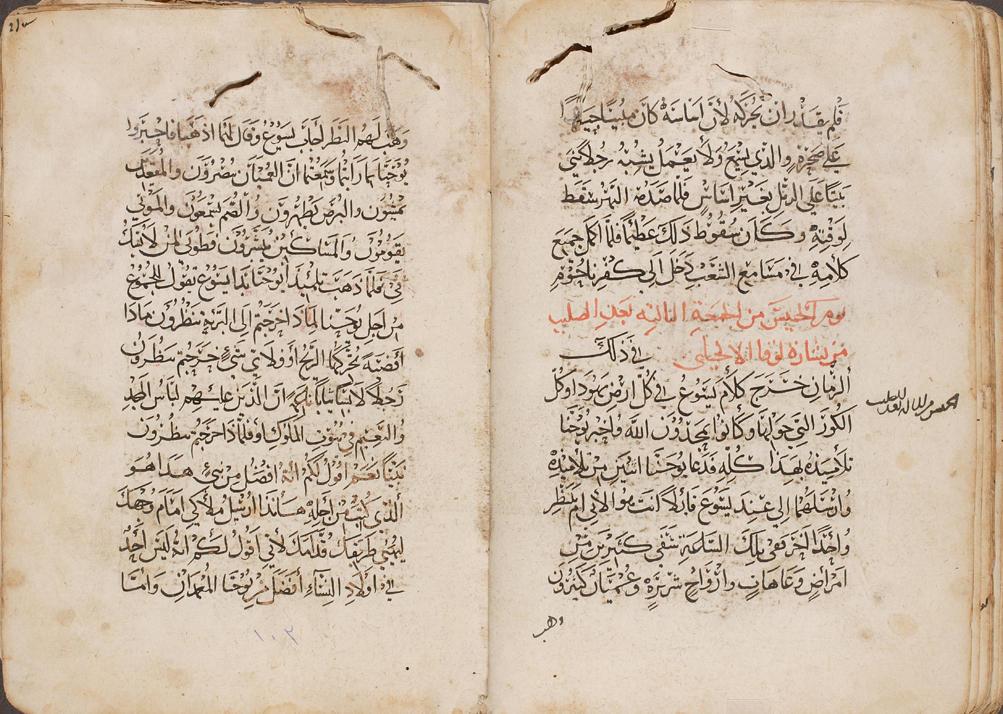 فلم يقدر ان يحركه لأن اساسه كان مبينًا جيدًا
على صخرة والذي يسمع ولا يعمل يشبه رجلا بنى
بيتًا على الرمل بغير اساس فلما صدمه النهر سقط
لوقته وكان سقوط ذلك عظيمًا فلما اكمل جميع
كلامه في مسامع الشعب دخل الى كفرناحوم
يوم الخميس من الجمعة الثانية بعد الصليب
من بشارة لوقا الانجيلي في ذلك
الزمان خرج كلام يسوع في كل ارض يهودا وكل
الكور التي حولها وكانوا يمجدون الله واخبر يوحنا
تلاميذه بهذا كله فدعا يوحنا اثنين من تلاميذه
وارسلهما الى عند يسوع قايلا انت هو الآتي ام ننتظر
واحدًا اخر ففي تلك الساعة شفى كثيرين من
امراض وعاهات وارواح شريرة وعميان كثيرون
وهب
وهب لهم النظر اجاب يسوع وقال لهما اذهبا فاخبروا
يوحنا بما رايتما وسمعتما ان العميان يبصرون والمقعدين
يمشون والبرص يطهرون والصم يسمعون والموتى
يقومون والمساكين يبشرون وطوبى لمن لا يشك
في فلما ذهب تلميذا يوحنا بدا يسوع يقول للجموع
من اجل يوحنا لماذا خرجتم الى البرية تنظرون ماذا
أقصبة تحركها الريح او ولاي شي خرجتم تنظرون
رجلا لابسًا ثيابًا ناعمة ان الذين عليهم لباس المجد
والتنعيم في بيوت الملوك او فلماذا خرجتم تنظرون
نبيًا نعم اقول لكم انه افضل من نبي هذا هو
الذي كتب من اجله هانذا ارسل ملاكي امام وجهك
ليهيي طريقك قدامك لأني اقول لكم انه ليس احد
في اولاد النساء أفضل من يوحنا المعمدان وامّا
١٠٢